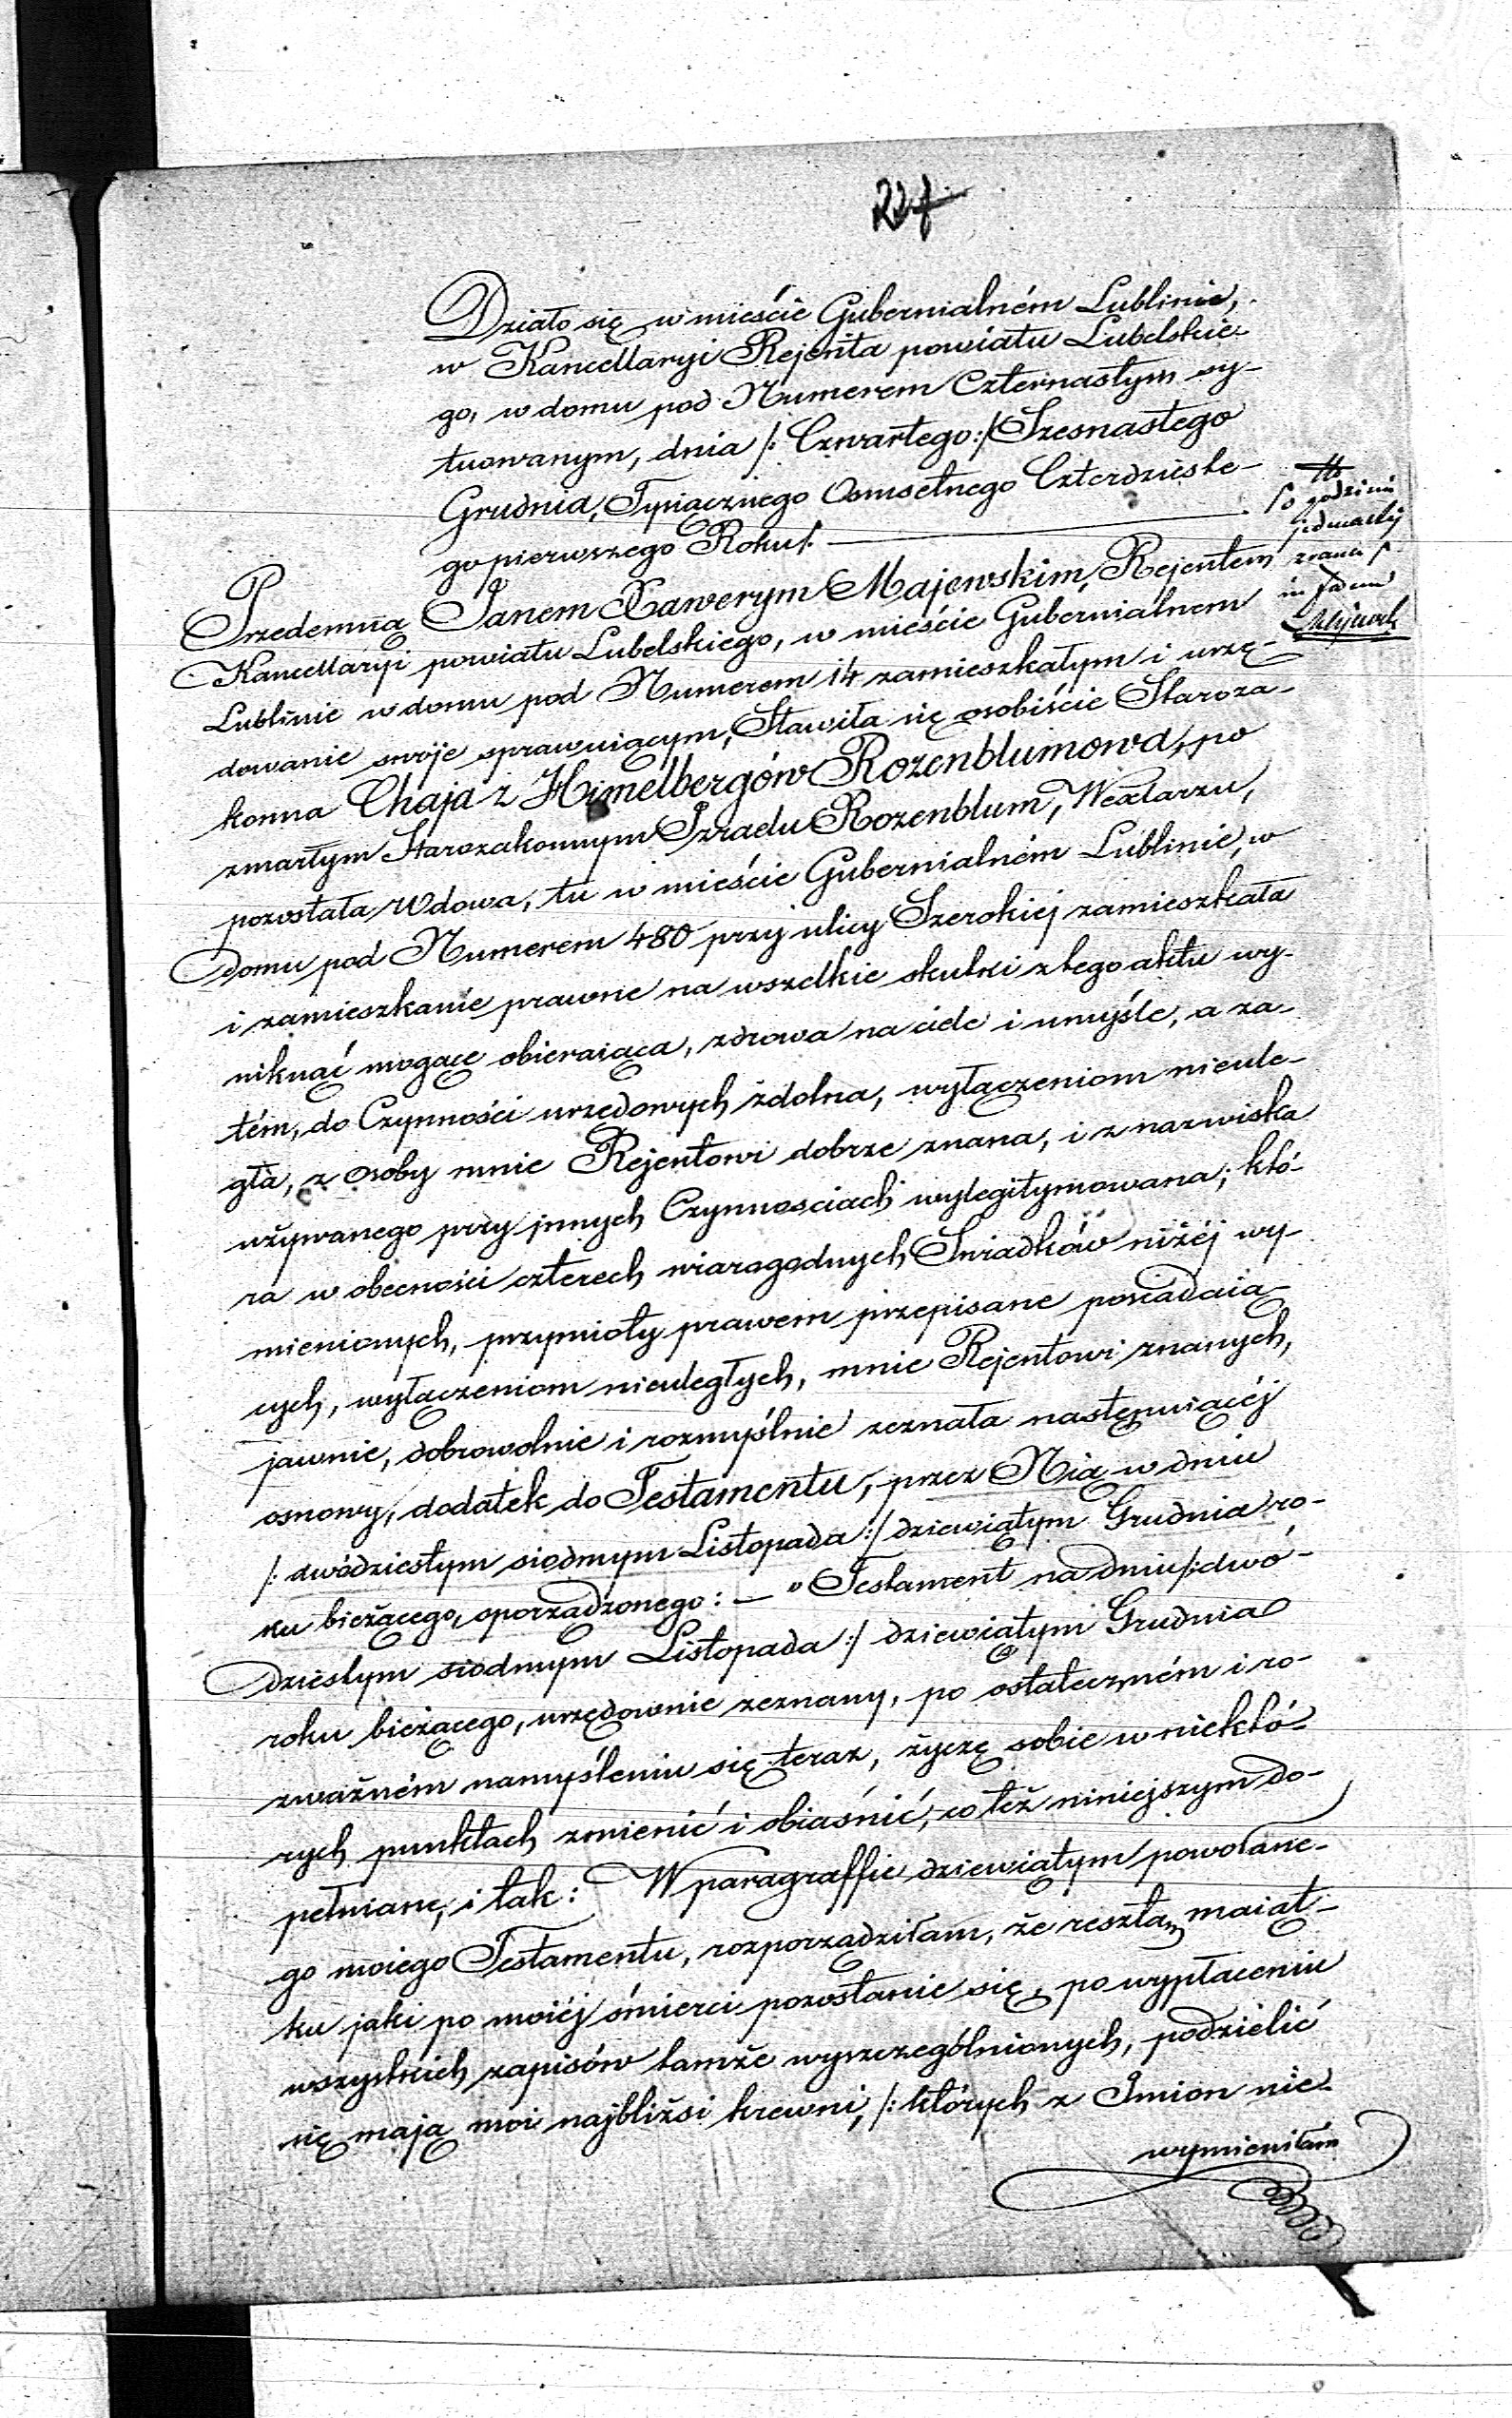 227
Działo się w mieście Gubernialném Lublinie,
w Kancellaryi Rejenta powiatu Lubelskie-
go, w domu pod Numerem Czternastym sy-
tuowanym, dnia /: Czwartego :/ Szesnastego
Grudnia, Tysiącznego Osmsetnego Czterdzieste-
go pierwszego Roku/.
po godzinie
Przedemną Janem Xawerym Majewskim, Rejentem
Kancellaryi powiatu Lubelskiego, w mieście Gubernialnem
Lublinie w domu pod Numerem 14 zamieszkałym i urzę-
dowanie swoje sprawuiącym, Stawiła się osobiście Staroza-
konna Chaja z Himelbergów Rozenblumowa, po
zmarłym Starozakonnym Izraelu Rozenblum, Wexlarzu,
pozostała Wdowa, tu w mieście Gubernialném Lublinie, w
domu pod Numerem 480 przy ulicy Szerokiej zamieszkała
i zamieszkanie prawne na wszelkie skutki z tego aktu wy-
niknąć mogące obieraiąca, zdrowa na ciele i umyśle, a za-
tém, do Czynności urzędowych zdolna, wyłączeniom nieule-
gła, z osoby mnie Rejentowi dobrze znana, i z nazwiska
używanego przy jnnych Czynnosciach wylegitymowana; któ-
ra w obecności czterech wiarogodnych Swiadków niżéj wy-
mienionych, przymioty prawem przepisane posiadaią-
cych, wyłączeniom nieuległych, mnie Rejentowi znanych,
jawnie, dobrowolnie i rozmyślnie zeznała następuiącéj
osnowy, dodatek do Testamentu, przez Nią w dniu
/: dwódziestym siodmym Listopada :/ dziewiątym Grudnia ro-
ku bieżącego, sporządzonego: — "Testament na dniu /: dwó-
dziestym siodmym Listopada :/ dziewiątym Grudnia
roku bieżącego, urzędownie zeznany, po ostateczném i ro-
zważném namyśleniu się teraz, życzę sobie w niektó-
rych punktach zmienić i obiaśnić, co też niniejszym do-
pełniam, i tak: W paragraffie dziewiątym powołane-
go moiego Testamentu, rozporządziłam, że resztą maiąt-
ku jaki po moiéj śmierci pozostanie się, po wypłaceniu
wszystkich zapisów tamże wyszczególnionych, podzielić
się mają moi najbliżsi krewni, /: których z Imion nie-
wymieniłam